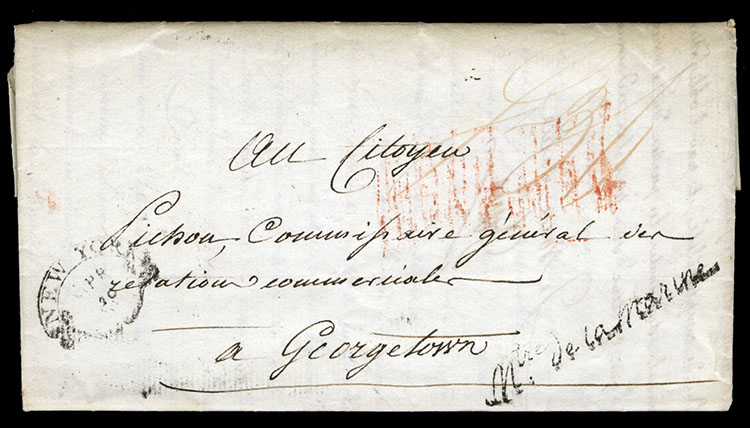 Au Citoyen
Pichon, Commissaire général des
relations commerciales
a Georgetown
NEW YORK
APR
20
Mtre. De la Marine